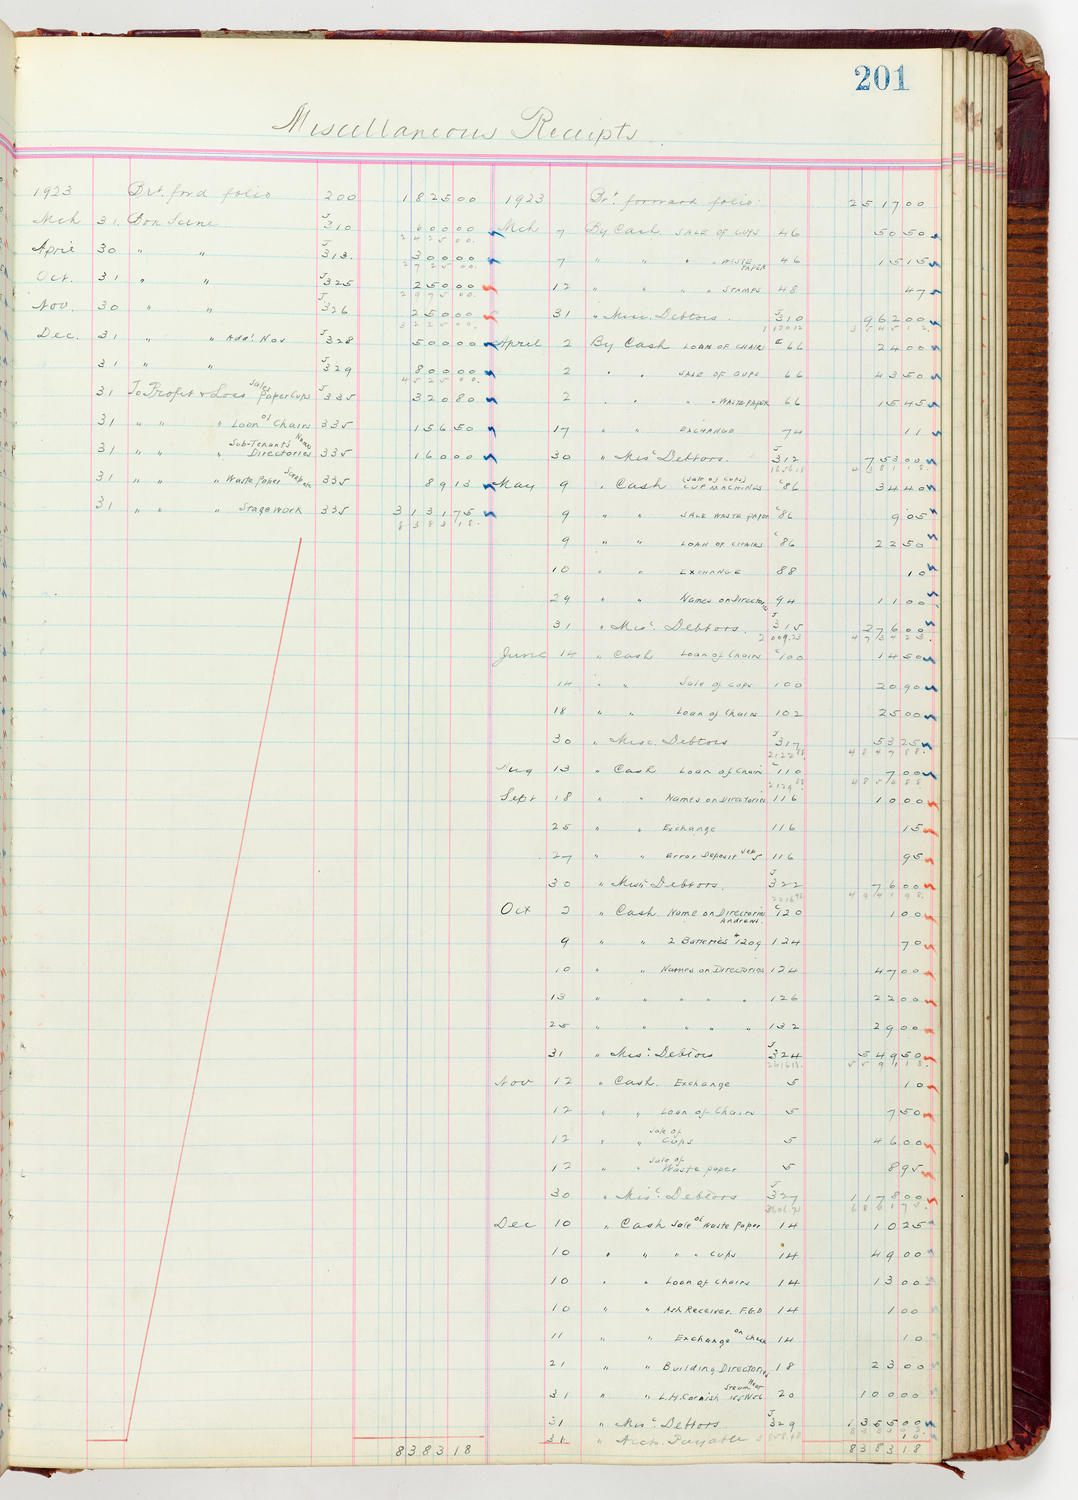 201
Miscellaneous Receipts
1923 Brt. ford folio 200 182500
Mch 31. Bon Scene J310 60000
242500.
April 30 " " J313. 30000
272500.
Oct. 31 " " J325 25000
297500.
Nov. 30 " " J326 25000
322500.
Dec. 31 " " Addl. Nov J328 50000
31 " " J329 80000
452500.
31 To Profit & Loss Sales Paper Cups J335 32080
31 " " " Loan of Chairs 335 15650
31 " " " Sub-Tenants Names Directories 335 16000
31 " " " Waste Paper Scrap etc 335 8913
31 " " " Stage Work 335 313175
838318.
838318
1923 Brt. forward folio. 251700
Mch 7 By Cash SALE OF CUPS 46 5050
7 " " " " WASTE PAPER 46 1515
12 " " " " STAMPS 48 47
31 " Misc. Debtors. J310 96200
354512
April 2 By Cash LOAN OF CHAIRS 66 2400
2 " " SALE OF CUPS 66 4350
2 " " " " WASTE PAPER 66 1545
17 " " EXCHANGE 74 11
30 " Misc Debtors. J312 75300
438118.
May 9 " Cash (Sale of Cups) CUP MACHINES C86 3440
9 " " SALE WASTE PAPER C86 905
9 " " LOAN OF CHAIRS C86 2250
10 " " EXCHANGE 88 10
29 " " Names on Directories 94 1100
31 " Misc. Debtors. J315 27600
2009.23 473423.
June 14 " Cash Loan of Chairs C100 1450
14 " " Sale of Cups 100 2090
18 " " Loan of Chairs 102 2500
30 " Misc. Debtors J317 5325
2122.88. 484788.
Aug 13 " Cash Loan of Chairs C110 700
2129.88 485488
Sept 18 " " Names on Directories 116 1000
25 " " Exchange 116 15
27 " " Error Deposit Sep 5 116 95
30 " Misc. Debtors. J322 7600
494198.
Oct 2 " Cash Name on Directories Andrews. C120 100
9 " " 2 Batteries #1209 124 70
10 " " Names on Directories 124 4700
13 " " " " " 126 2200
25 " " " " " 132 2900
31 " Misc. Debtors J324 54950
2616.18. 559118.
Nov 12 " Cash. Exchange 5 10
12 " " Loan of Chairs 5 750
12 " " Sale of Cups 5 4600
12 " " Sale of Waste paper 5 895
30 " Misc. Debtors J327 117800
683173.
Dec 10 " Cash Sale of Waste Paper 14 1025
10 " " " " Cups 14 4900
10 " " Loan of Chairs 14 1300
10 " " Ash Receiver. F.G.D 14 100
11 " " Exchange on Check 14 10
21 " " Building Directories 18 2300
31 " " L.H. Cornish Steam Heat 20 10000
31 " Misc. Debtors J329 135500
31 " Accts. Payable 10
838318